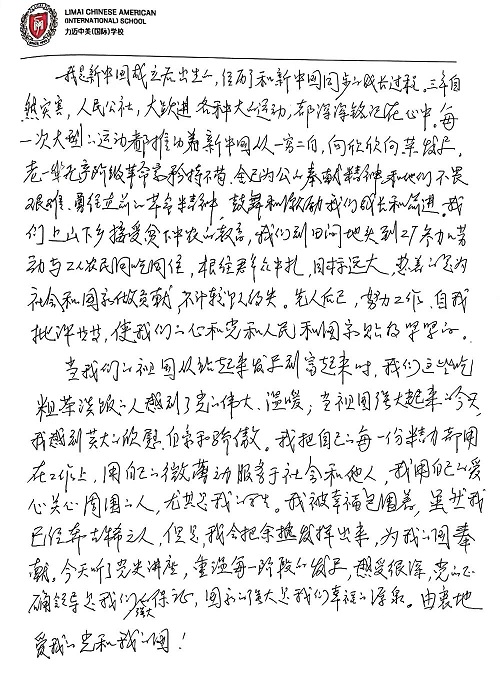 LIMAI CHINESE AMERICAN
(INTERNATIONAL) SCHOOL
力迈中美(国际)学校
我是新中国成立后出生人,经历了和新中国同步的成长过程,三年自
然灾害,人民公社,大跃进各种大的运动,都深深铭记在心中。每
一次大型的运动都推动着新中国从一穷二白,向欣欣向荣发展,
老一辈无产阶级革命高矜持不昔、全己为公的奉献精神和他们不畏
艰难、勇往直前的革命精神,鼓舞和激励我们成长和前进。我
们上山下乡接受贫下中农的教育,我们到田间地头到工厂参加劳
动与工人农民同吃同住,根经群众中扎,目标远大,意义的是为
社会和国家做贡献,不计较个人得失。先人后己,努力工作、自我
批评等等,使我们的心和党和人民和国家贴得紧紧的。
当我们的祖国从站起来发展到富起来时,我们这些吃
粗茶淡饭的人感到了党的伟大、温暖;当祖国强大起来的今天,
我感到莫大的欣慰、自豪和骄傲。我把自己的每一份精力都用
在工作上,用自己的微薄力服务于社会和他人,我用自己的爱
心关心周围的人,尤其是我的学生。我被幸福包围着,虽然我
已经年古稀之人,但是我会把余热发挥出来,为我的国奉
献。今天听了党史讲座,重温每一阶段的发展,感受很深,党的正
确领导是我们强大保证,国家的强大是我们幸福的源泉。由衷地
爱我的党和我的国!